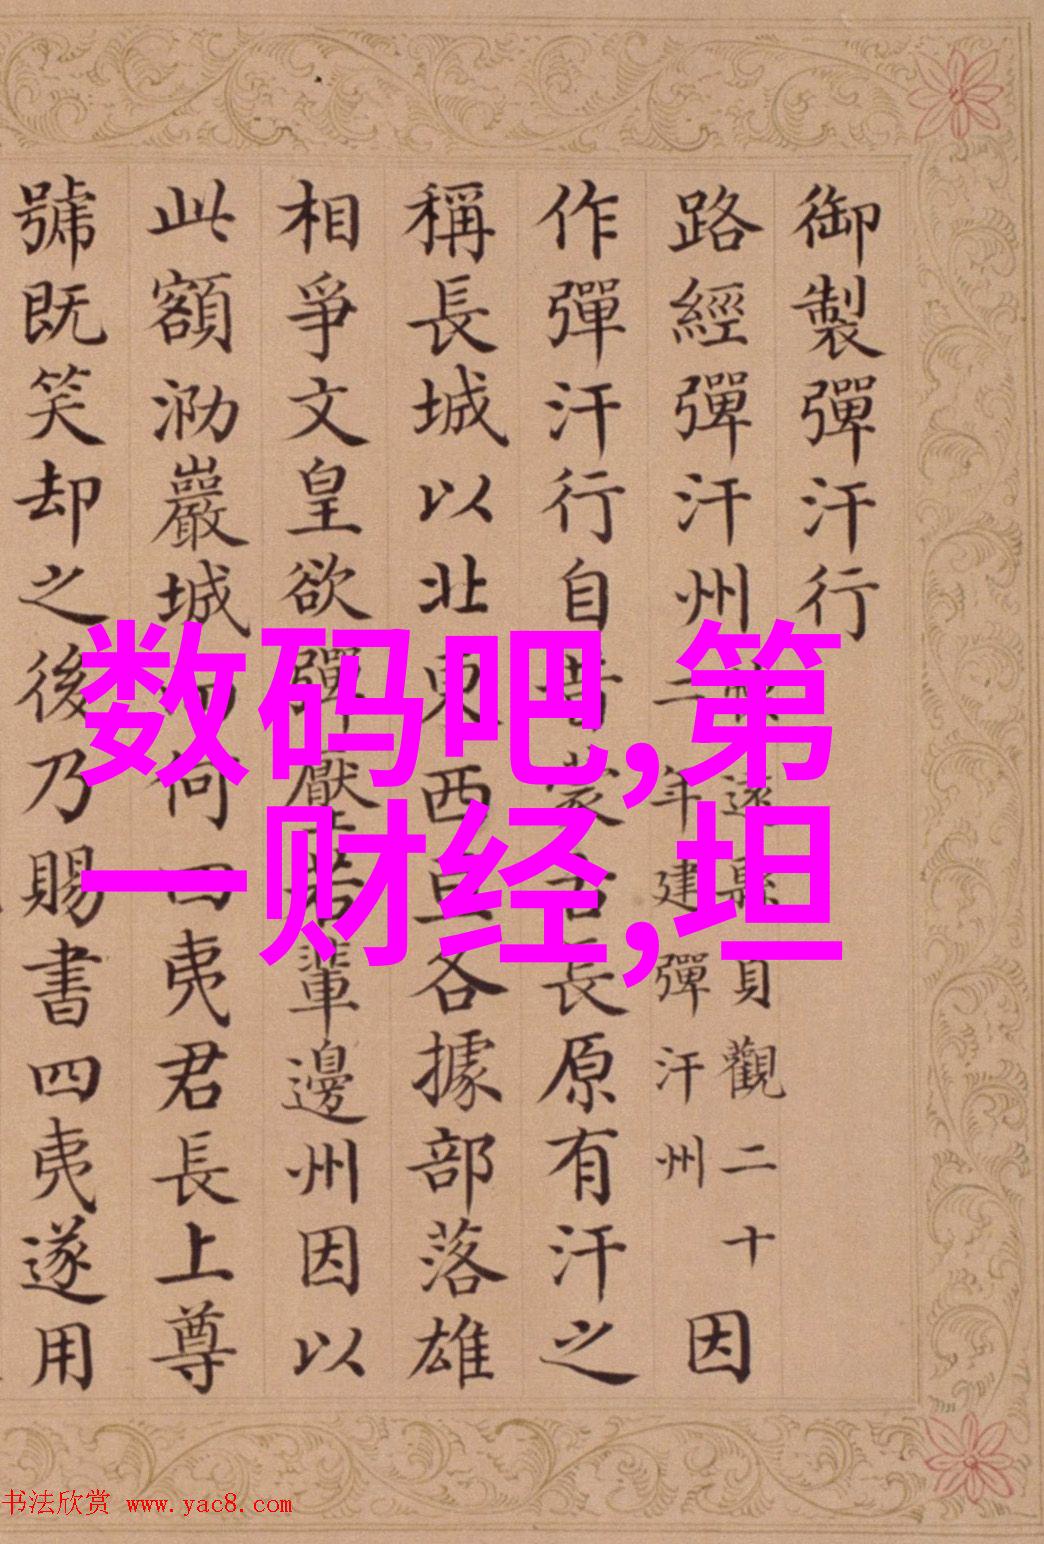 御製彈汗行
路經彈汗州遠縣貞觀二十二年建彈汗州因
作彈汗行自昔蒙古長原有汗之
稱長城以北東西亘各據部落雄
相爭文皇欲彈壓若輩邊州因以
此額泐巖城何夷君長上尊
號既笑却之後乃賜書四夷遂用
数码吧,第
一财经,坦
书法欣赏 www.yac8.com